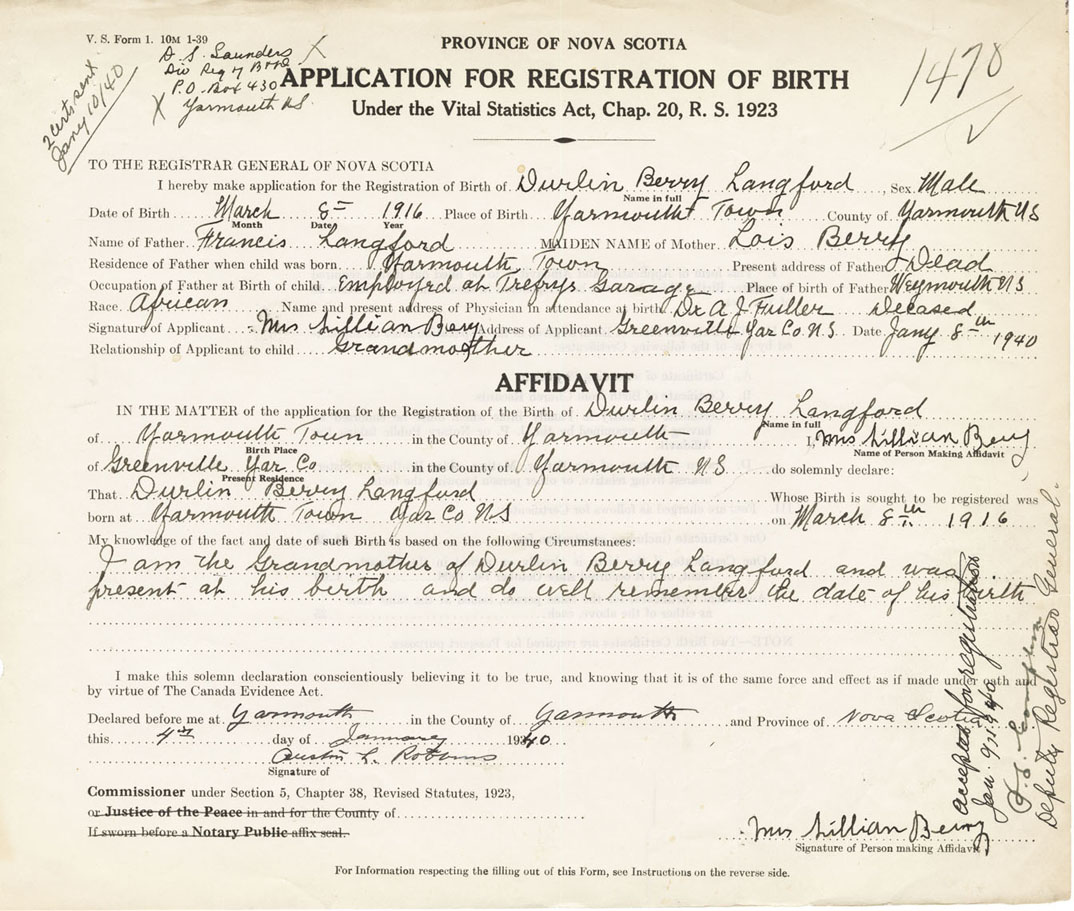 V. S. Form 1. 10M 1-39
PROVINCE OF NOVA SCOTIA
D. S. Saunders X
Div Reg of
P.O. Box 430
X Yarmouth NS
2 certs sent
Jany 10/40
1478
APPLICATION FOR REGISTRATION OF BIRTH
Under the Vital Statistics Act, Chap. 20, R. S. 1923
TO THE REGISTRAR GENERAL OF NOVA SCOTIA
I hereby make application for the Registration of Birth of Durlin Berry Langford, Sex Male
Name in full
Date of Birth March 8th 1916 Place of Birth Yarmouth Town County of Yarmouth NS
Month Date Year
Name of Father Francis Langford MAIDEN NAME of Mother Lois Berry
Residence of Father when child was born Yarmouth Town Present address of Father Dead
Occupation of Father at Birth of child Employed at Trefrys Garage Place of birth of Father Weymouth NS
Race African Name and present address of Physician in attendance at birth Dr A J Fuller Deceased
Signature of Applicant Mrs Lillian Berry Address of Applicant Greenville Yar Co. N.S. Date Jany 8th 1940
Relationship of Applicant to child Grandmother
AFFIDAVIT
IN THE MATTER of the application for the Registration of the Birth of Durlin Berry Langford
Name in full
of Yarmouth Town in the County of Yarmouth I, Mrs Lillian Berry
Birth Place Name of Person Making Affidavit
of Greenville Yar Co in the County of Yarmouth NS do solemnly declare:
Present Residence
That Durlin Berry Langford Whose Birth is sought to be registered was
born at Yarmouth Town Yar Co NS on March 8th 1916
My knowledge of the fact and date of such Birth is based on the following Circumstances:
I am the Grandmother of Durlin Berry Langford and was
present at his birth and do well remember the date of his birth
I make this solemn declaration conscientiously believing it to be true, and knowing that it is of the same force and effect as if made under oath and
by virtue of The Canada Evidence Act.
Declared before me at Yarmouth in the County of Yarmouth and Province of Nova Scotia
this 4th day of January 1940
Austin L. Robbins
Signature of
Commissioner under Section 5, Chapter 38, Revised Statutes, 1923,
or Justice of the Peace in and for the County of
If sworn before a Notary Public affix seal.
Mrs Lillian Berry
Signature of Person making Affidavit
Accepted for registration
Jan. 9th 1940
Deputy Registrar General.
For Information respecting the filling out of this Form, see Instructions on the reverse side.